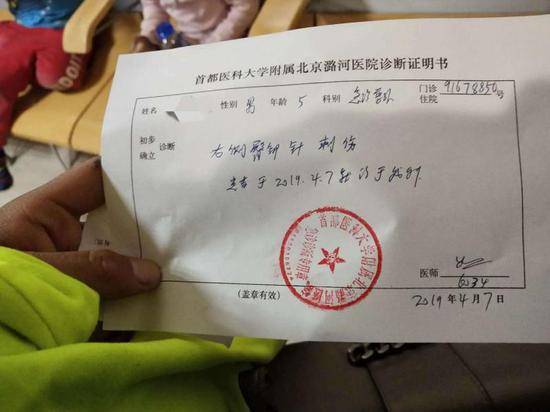 首都医科大学附属北京潞河医院诊断证明书
姓名 性别 男 年龄 5 科别 急诊
门诊
住院 91678850号
初步
确立 诊断
右侧臀部针刺伤
患者于2019.4.7
首都医科大学附属北京潞河医院
医师
6034
(盖章有效)
2019年4月7日